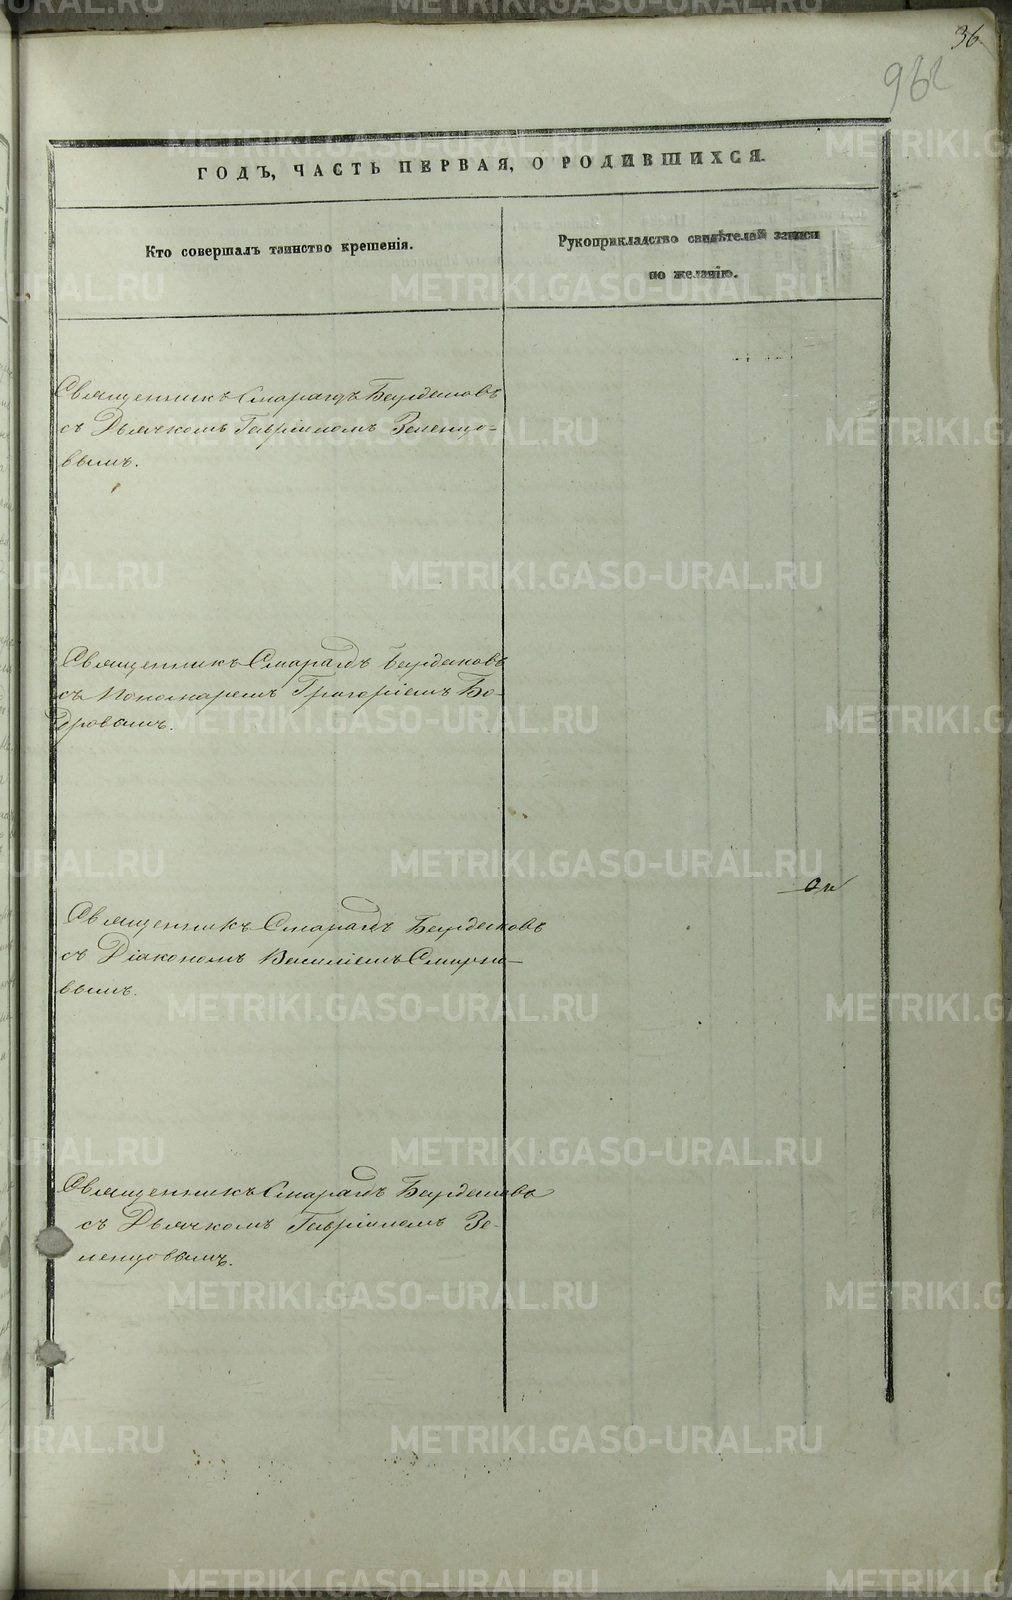 36.
962
ГОДЪ, ЧАСТЬ ПЕРВАЯ, О РОДИВШИХСЯ.
Кто совершалъ таинство крещенія.
Рукоприкладство свидѣтелей записи
по желанію.
Священникъ Смарагдъ Бурдашовъ
съ Дьячкомъ Гавріиломъ Зеленцо-
вымъ.
Священникъ Смарагдъ Бурдаковъ
съ Пономаремъ Григоріемъ Бо-
бровымъ.
Священникъ Смарагдъ Бурдаковъ
съ Діакономъ Василіемъ Смирно-
вымъ.
Священникъ Смарагдъ Бурдаковъ
съ Дьячкомъ Гавріиломъ Зе-
ленцовымъ.
METRIKI.GASO-URAL.RU